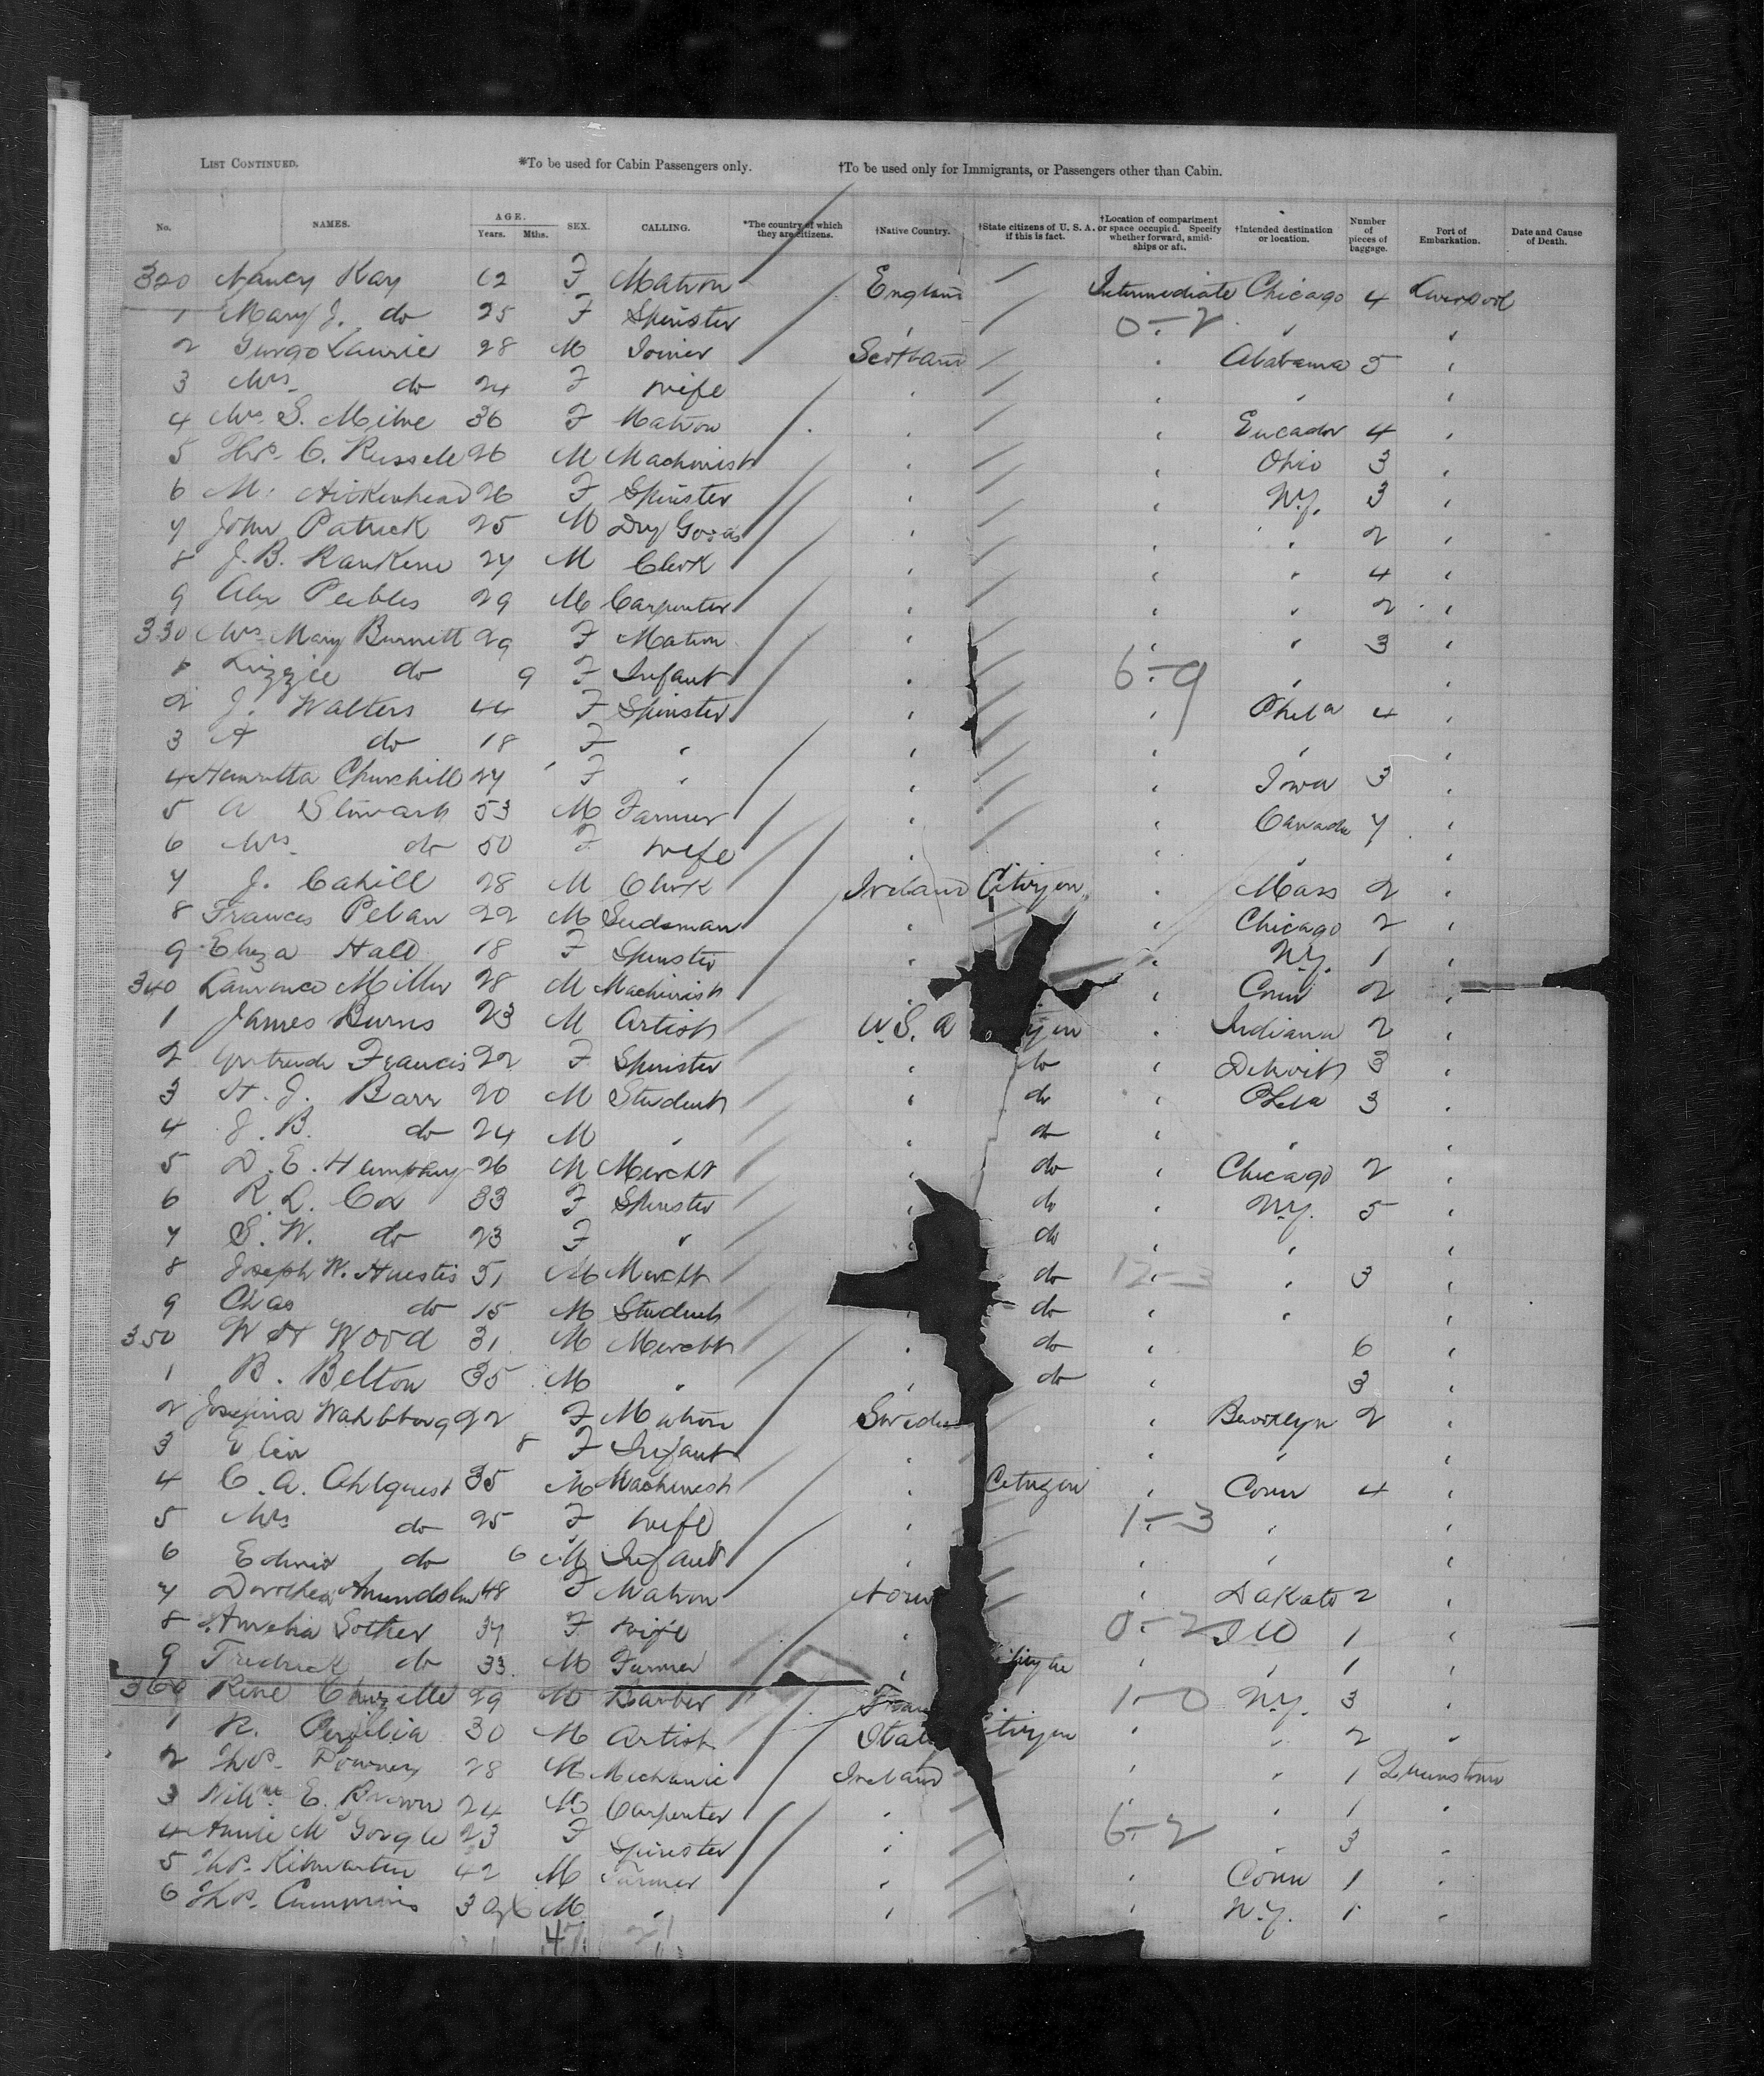 LIST CONTINUED. *To be used for Cabin Passengers only. †To be used only for Immigrants, or Passengers other than Cabin.
No. NAMES. AGE. Years. Mths. SEX. CALLING. *The country of which they are citizens. †Native Country. †State citizens of U. S. A. if this is fact. †Location of compartment or space occupied. Specify whether forward, amidships or aft. †Intended destination or location. Number of pieces of baggage. Port of Embarkation. Date and Cause of Death.
320 Nancy Kay 62 F Matron England Intermediate Chicago 4 Liverpool
1 Mary J. do 25 F Spinster " 0-2 " "
2 Laurie 28 M Joiner Scotland " Alabama 5 "
3 Mrs do 24 F Wife " " " "
4 Mrs S. Milne 36 F Matron " " Ecuador 4 "
5 Thos. C. Russell 26 M Machinist " " Ohio 3 "
6 M. Aitkenhead 26 F Spinster " " N.Y. 3 "
7 John Patrick 25 M Dry Goods " " " 2 "
8 J. B. Rankene 27 M Clerk " " " 4 "
9 Alex Peebles 29 M Carpenter " " " 2 "
330 Mrs Mary Burnett 29 F Matron " " " 3 "
1 Lizzie do 9 F Infant " 6-9 " "
2 J. Walters 44 F Spinster " " Phila 4 "
3 A do 18 F " " " " "
4 Henrietta Churchill 27 F " " " Iowa 3 "
5 A Stewart 53 M Farmer " " Canada 7 "
6 Mrs do 50 F Wife " " " "
7 J. Cahill 28 M Clerk Ireland Citizen " Mass 2 "
8 Frances Pelan 22 M Seedsman " " Chicago 2 "
9 Eliza Hall 18 F Spinster " " N.Y. 1 "
340 Lawrence Miller 28 M Machinist " " Conn 2 "
1 James Burns 23 M Artist U.S.A zen " Indiana 2 "
2 Gertrude Francis 22 F Spinster " do " Detroit 3 "
3 H. J. Barr 20 M Student " do " Phila 3 "
4 J. B. do 24 M " " do " " "
5 D. E. Humphrey 26 M Mercht " do " Chicago 2 "
6 R. L. Cox 33 F Spinster " do " N.Y. 5 "
7 S. W. do 23 F " " do " " "
8 Joseph W. Huestis 51 M Mercht do 12-3 " 3 "
9 Chas do 15 M Student " do " " "
350 W H Wood 31 M Mercht " do " 6 "
1 B. Belton 35 M " " do " 3 "
2 Josefina Wahlborg 22 F Matron Sweden " Brooklyn 2 "
3 Elin 8 F Infant " " " "
4 C. A. Ahlquist 35 M Machinist " Citizen " Conn 4 "
5 Mrs do 25 F Wife " 1-3 " "
6 do 6 M Infant " " " "
7 Dorothea 48 F Matron Norw " Dakota 2 "
8 Amelia Sother 37 F Wife " 0-2 Ill 1 "
9 Fredrick do 33 M Farmer " " " 1 "
360 29 M Barber Fran 1-0 N.Y. 3 "
1 R. 30 M Artist Ital itizen " " 2 "
2 Thos. 28 M Mechanic Ireland " " 1 Queenstown
3 Willm E. Brown 24 M Carpenter " " 1 "
4 Annie 23 F Spinster " 6-2 " 3 "
5 Thos. Kilmartin 42 M Farmer " " Conn 1 "
6 Thos. Cummins 3 M " " " N.Y. 1 "
47 21